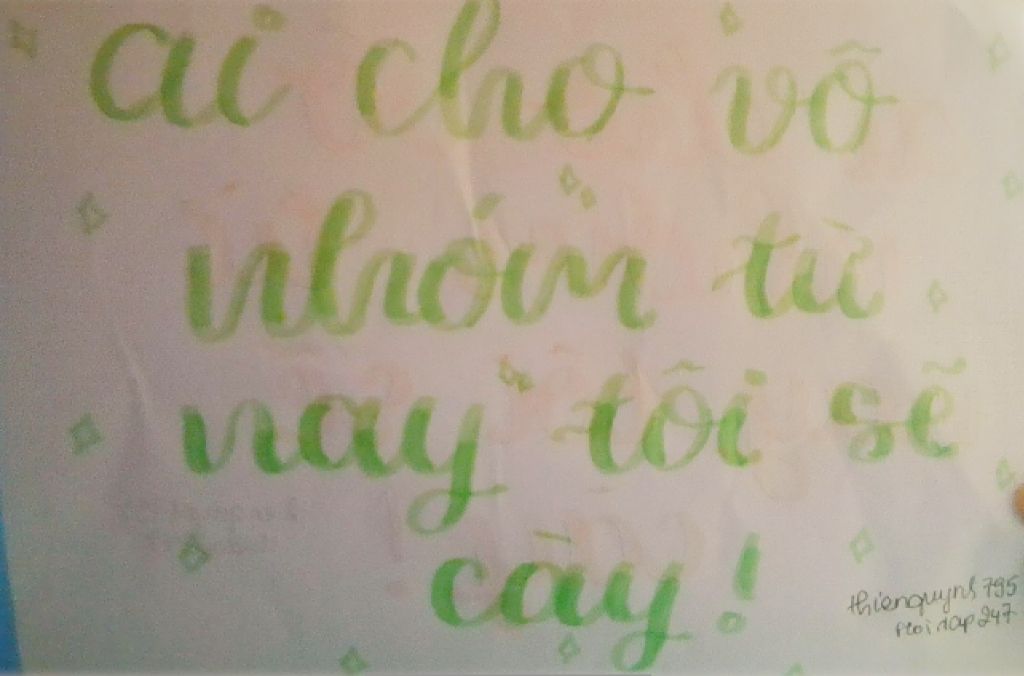 ai cho vô
nhóm từ
nay tôi sẽ
cày!
thienquynh795